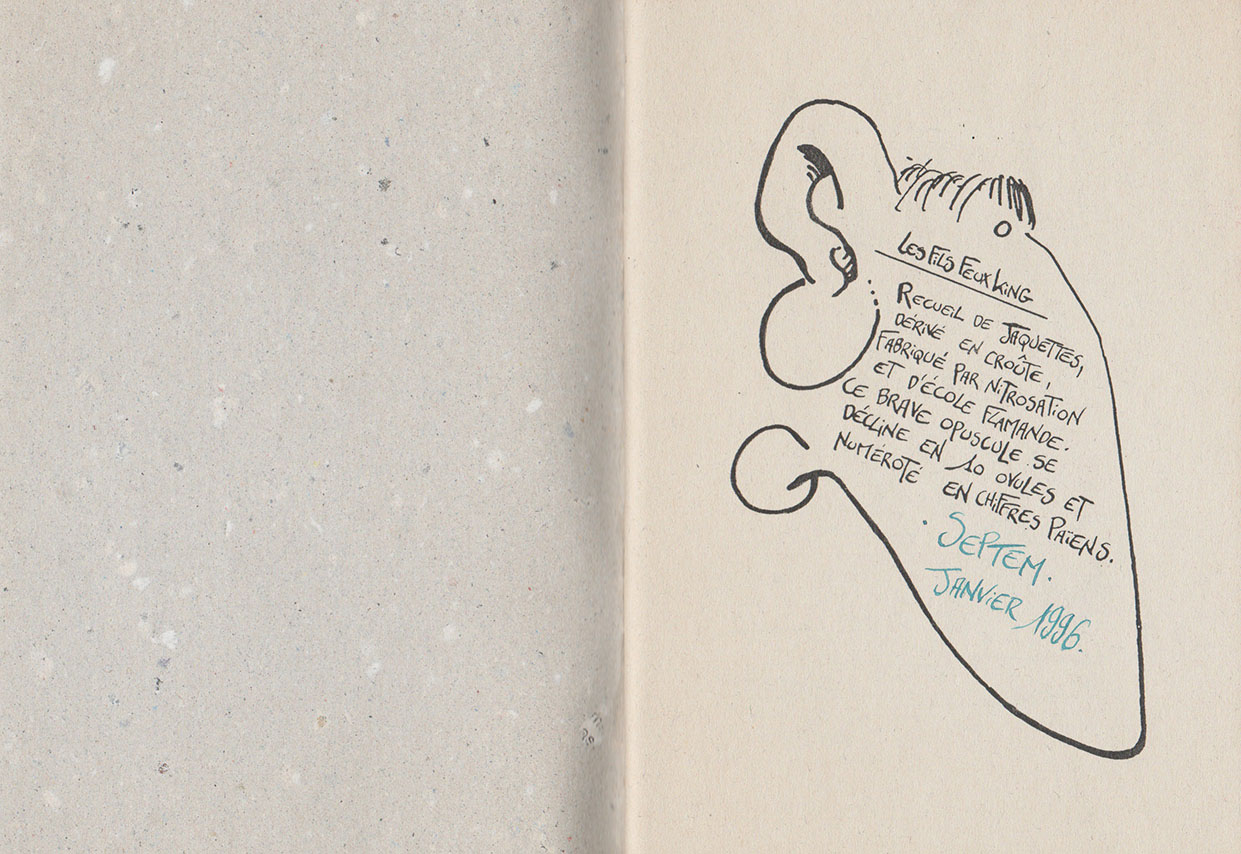 Les Fils Feux King
Recueil de Jaquettes,
dérivé en croûte,
Fabriqué par nitrosation
et d'école Flamande.
Ce brave opuscule se
décline en 10 ovules et
numéroté en chiffres païens.
. Septem.
Janvier 1996.